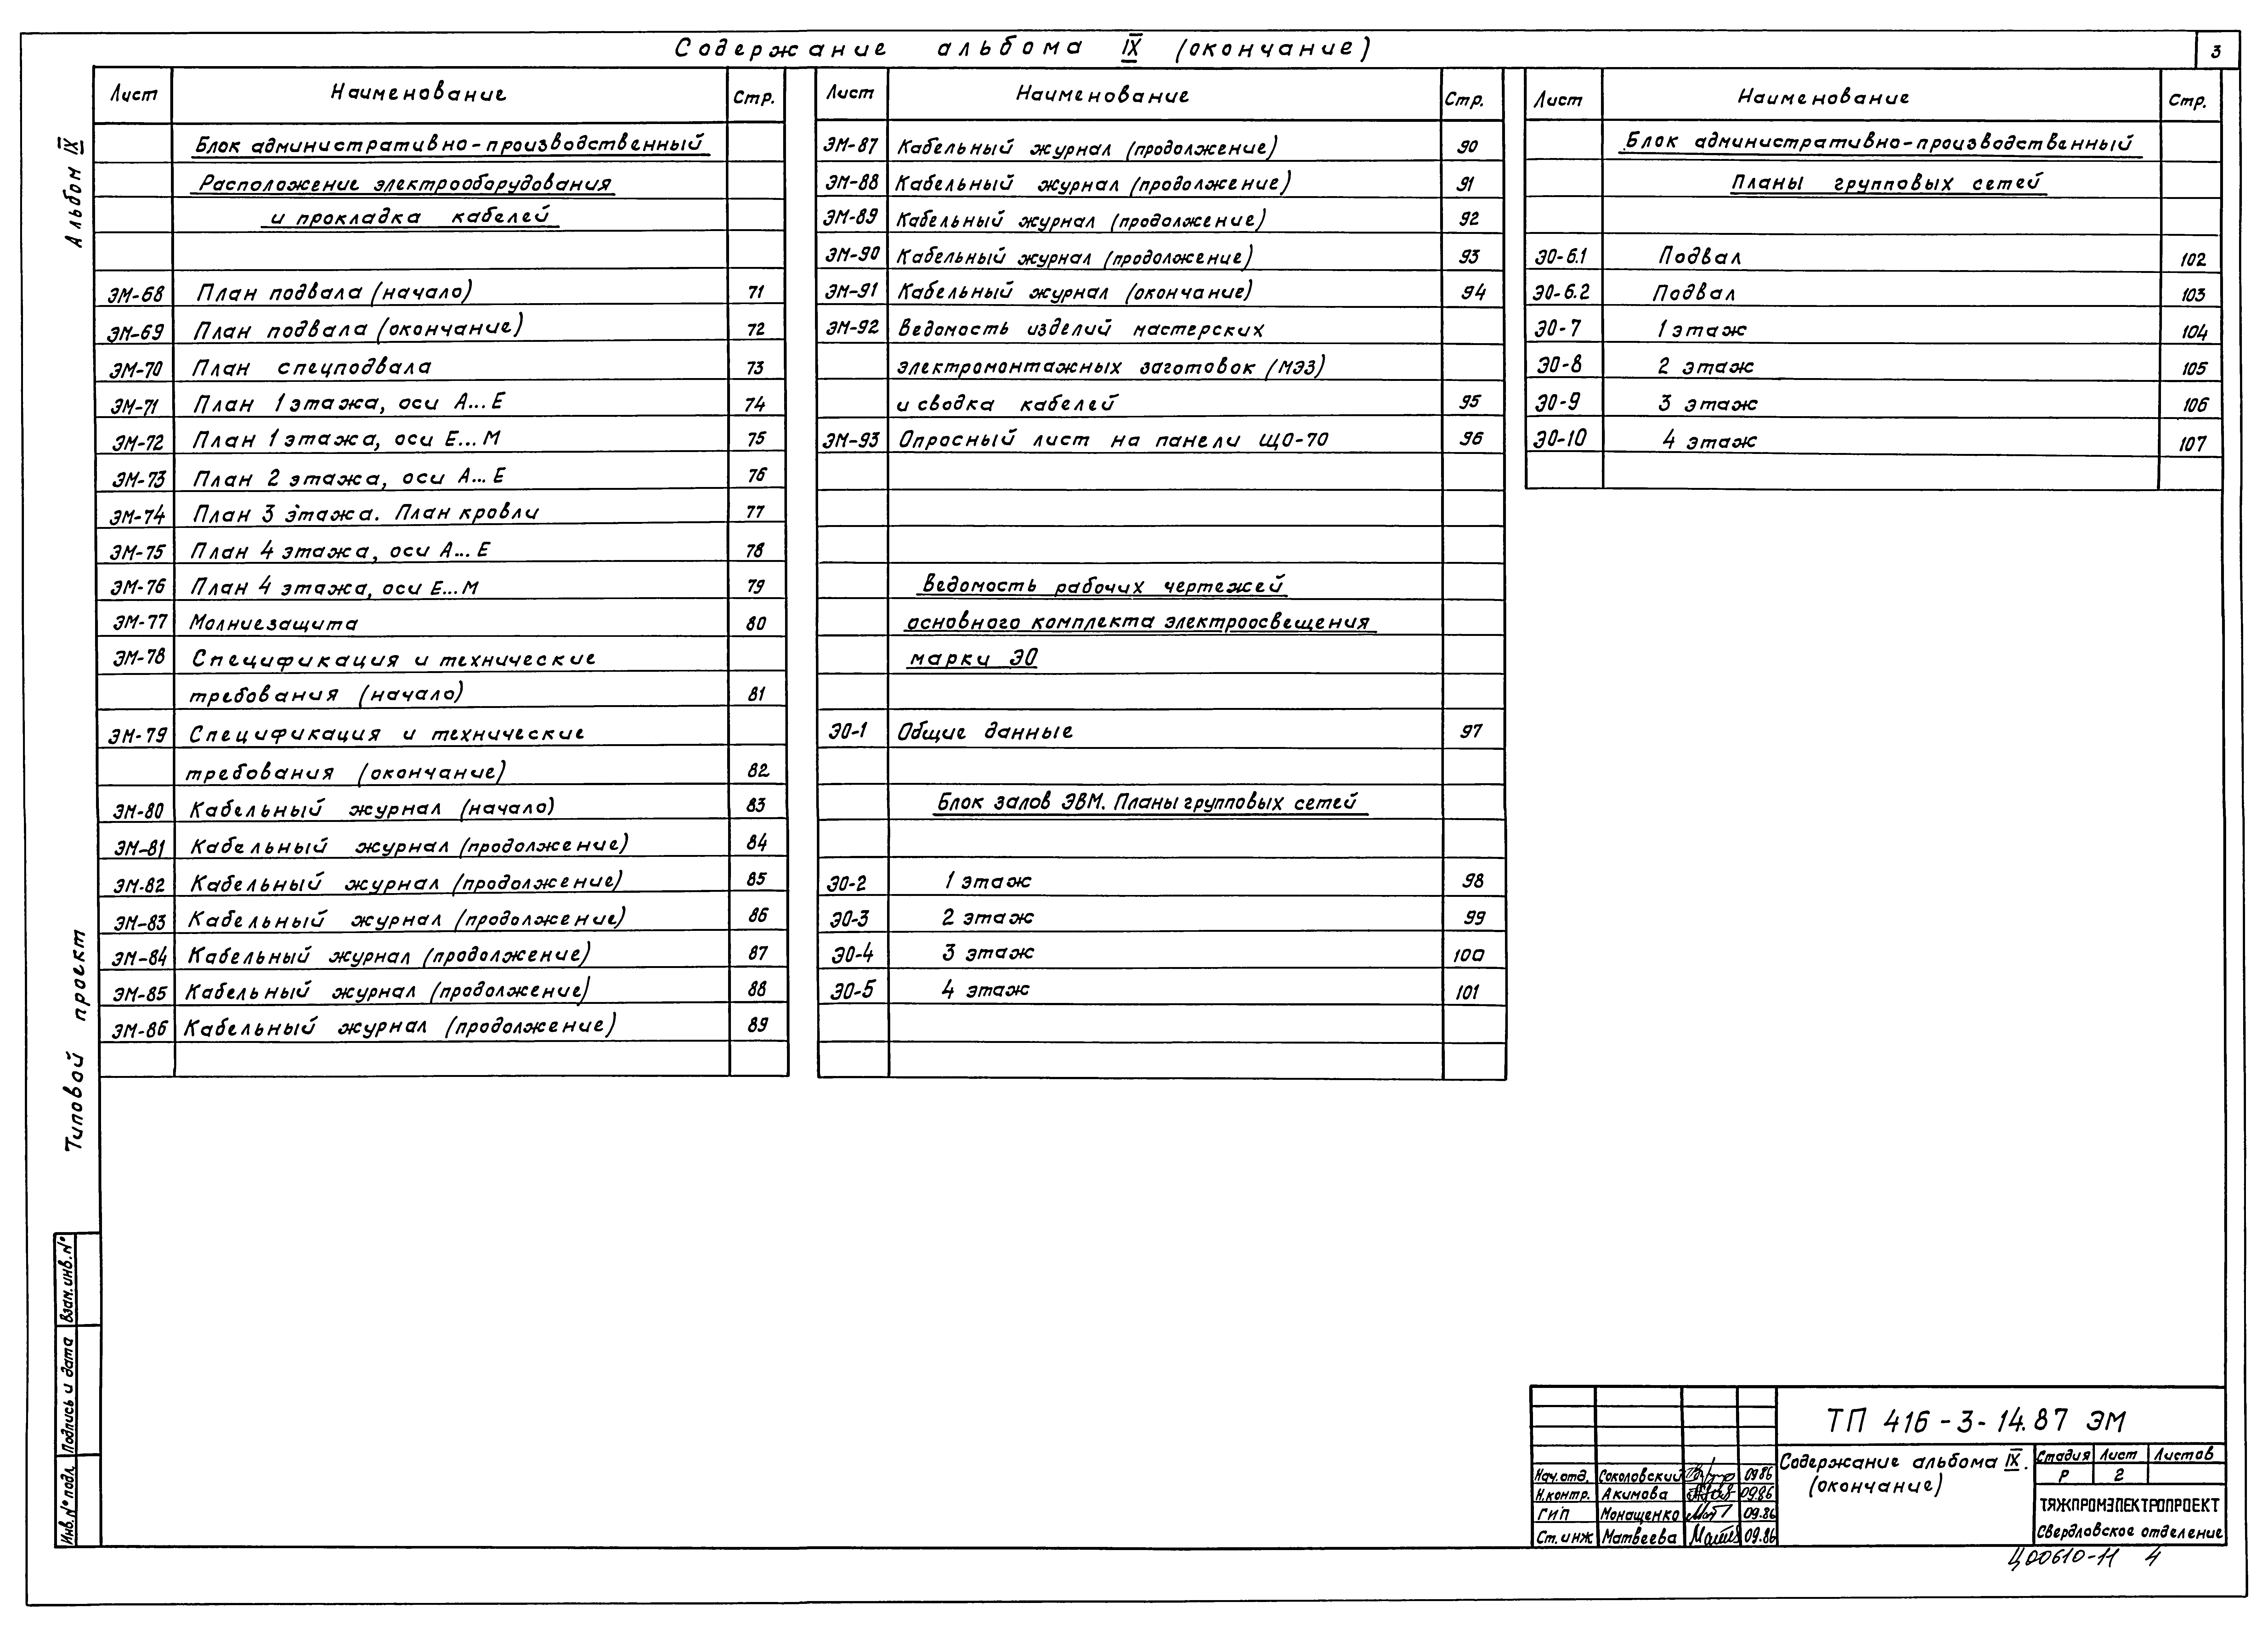 Содержание альбома IX (окончание)
3
Альбом IX
Типовой проект
Лист Наименование Стр.
Блок административно-производственный
Расположение электрооборудования
и прокладка кабелей
ЭМ-68 План подвала (начало) 71
ЭМ-69 План подвала (окончание) 72
ЭМ-70 План спецподвала 73
ЭМ-71 План 1 этажа, оси А...Е 74
ЭМ-72 План 1 этажа, оси Е...М 75
ЭМ-73 План 2 этажа, оси А...Е 76
ЭМ-74 План 3 этажа. План кровли 77
ЭМ-75 План 4 этажа, оси А...Е 78
ЭМ-76 План 4 этажа, оси Е...М 79
ЭМ-77 Молниезащита 80
ЭМ-78 Спецификация и технические
требования (начало) 81
ЭМ-79 Спецификация и технические
требования (окончание) 82
ЭМ-80 Кабельный журнал (начало) 83
ЭМ-81 Кабельный журнал (продолжение) 84
ЭМ-82 Кабельный журнал (продолжение) 85
ЭМ-83 Кабельный журнал (продолжение) 86
ЭМ-84 Кабельный журнал (продолжение) 87
ЭМ-85 Кабельный журнал (продолжение) 88
ЭМ-86 Кабельный журнал (продолжение) 89
Лист Наименование Стр.
ЭМ-87 Кабельный журнал (продолжение) 90
ЭМ-88 Кабельный журнал (продолжение) 91
ЭМ-89 Кабельный журнал (продолжение) 92
ЭМ-90 Кабельный журнал (продолжение) 93
ЭМ-91 Кабельный журнал (окончание) 94
ЭМ-92 Ведомость изделий мастерских
электромонтажных заготовок (МЭЗ)
и сводка кабелей 95
ЭМ-93 Опросный лист на панели ЩО-70 96
Ведомость рабочих чертежей
основного комплекта электроосвещения
марки ЭО
ЭО-1 Общие данные 97
Блок залов ЭВМ. Планы групповых сетей
ЭО-2 1 этаж 98
ЭО-3 2 этаж 99
ЭО-4 3 этаж 100
ЭО-5 4 этаж 101
Лист Наименование Стр.
Блок административно-производственный
Планы групповых сетей
ЭО-6.1 Подвал 102
ЭО-6.2 Подвал 103
ЭО-7 1 этаж 104
ЭО-8 2 этаж 105
ЭО-9 3 этаж 106
ЭО-10 4 этаж 107
Взам. инв. №
Подпись и дата
Инв. № подл.
ТП 416-3-14.87 ЭМ
Содержание альбома IX.
(окончание)
Стадия Лист Листов
Р 2
ТЯЖПРОМЭЛЕКТРОПРОЕКТ
Свердловское отделение
Нач. отд. Соколовский 09.86
Н. контр. Акимова 09.86
ГИП Монащенко 09.86
Ст. инж Матвеева 09.86
Ц00610-11 4